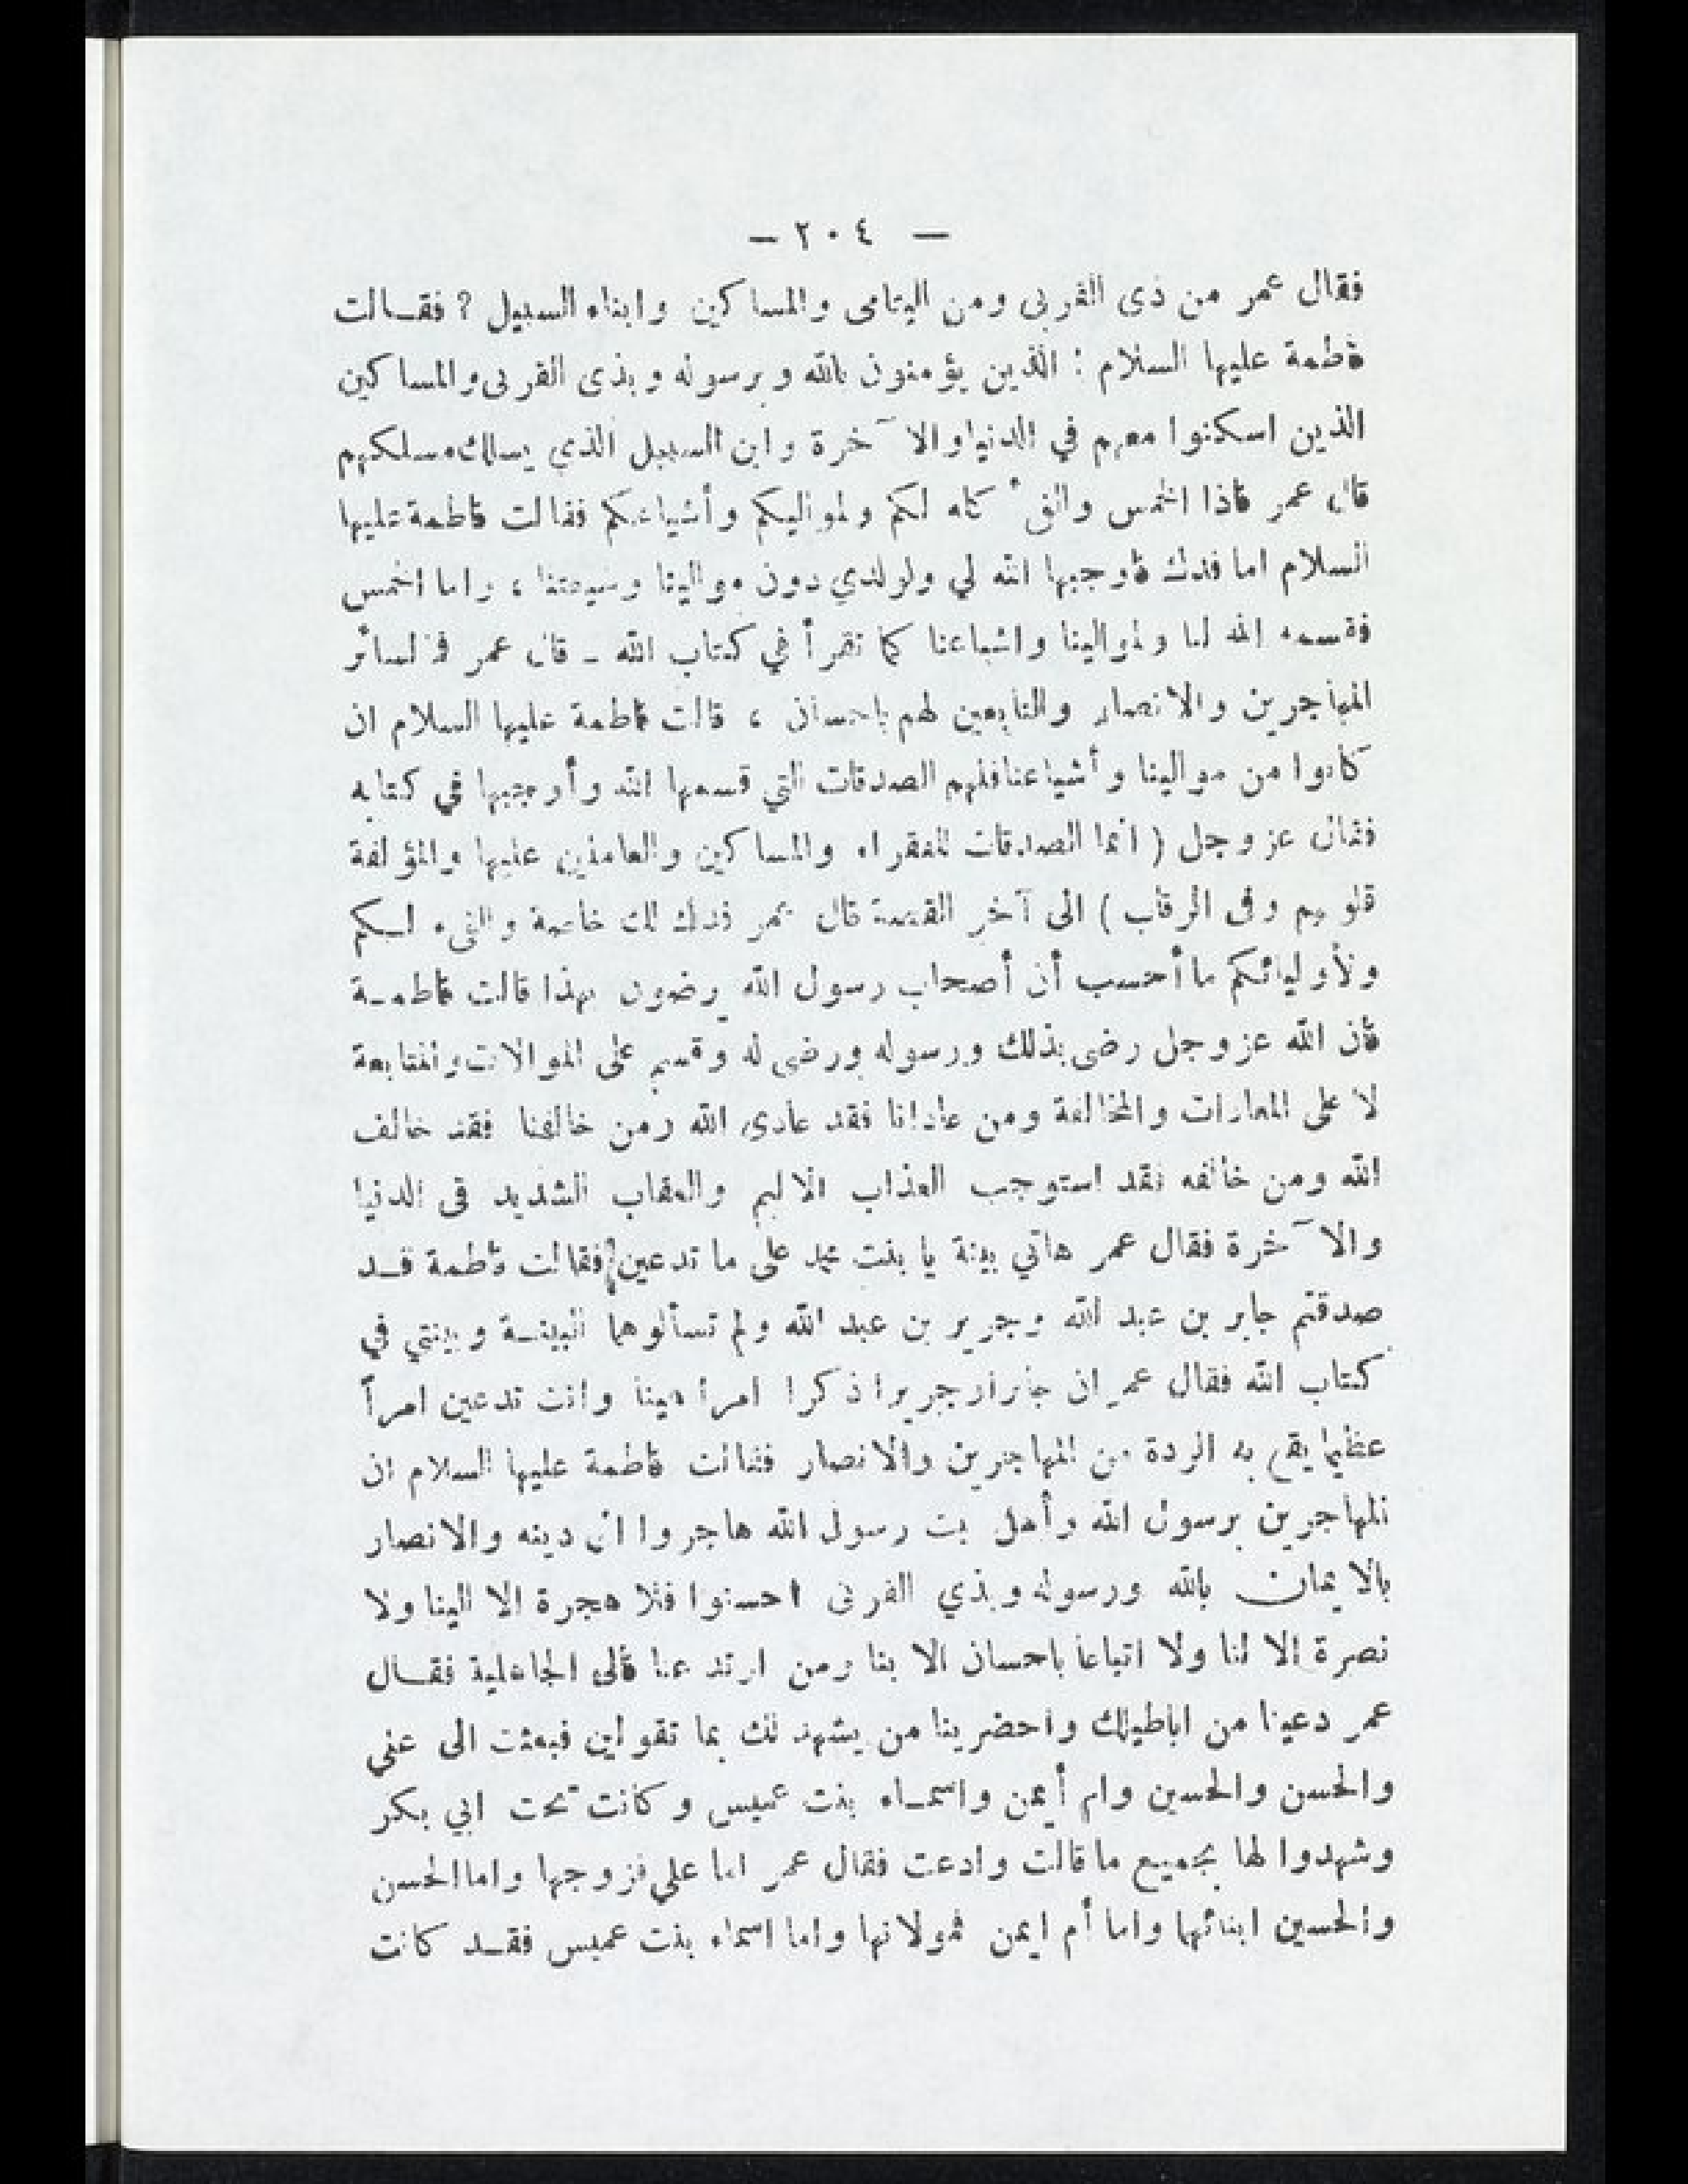 — ٢٠٤ —
فقال عمر من ذى القربى ومن اليتامى والمساكين وابناء السبيل ؟ فقـالت
فاطمة عليها السلام : الذين يؤمنون بالله وبرسوله وبذى القربى والمساكين
الذين اسكنوا معهم في الدنيا والآخرة وابن السبيل الذي يسلك مسلكهم
قال عمر فاذا الخمس والفئ كله لكم ولمواليكم وأشياعكم فقالت فاطمة عليها
السلام اما فدك فاوجبها الله لي ولولدي دون موالينا وشيعتنا ، واما الخمس
فقسمه الله لنا ولموالينا واشياعنا كما نقرأ في كتاب الله ـ قال عمر فما لسائر
المهاجرين والانصار والتابعين لهم باحسان ، قالت فاطمة عليها السلام ان
كانوا من موالينا وأشياعنا فلهم الصدقات التي قسمها الله وأوجبها في كتابه
فقال عز وجل ( انما الصدقات للفقراء والمساكين والعاملين عليها والمؤلفة
قلوبهم وفى الرقاب ) الى آخر القصة قال عمر فدك لك خاصة والفىء لـكم
ولأوليائكم ما أحسب أن أصحاب رسول الله يرضون بهذا قالت فاطمـة
فأن الله عز وجل رضى بذلك ورسوله ورضى له وقسم على الموالات والمتابعة
لا على المعادات والمخالفة ومن عادانا فقد عادى الله ومن خالفنا فقد خالف
الله ومن خالفه فقد استوجب العذاب الاليم والعقاب الشديد فى الدنيا
والآخرة فقال عمر هاتي بينة يا بنت محمد على ما تدعين ؟ فقالت فاطمة قـد
صدقتم جابر بن عبد الله وجرير بن عبد الله ولم تسألوهما البينـة وبينتي في
كتاب الله فقال عمر ان جابرا وجريرا ذكرا امرا هينا وانت تدعين امرأ
عظيما يقع به الردة من المهاجرين والانصار فقالت فاطمة عليها السلام ان
المهاجرين برسول الله وأهل بيت رسول الله هاجروا الى دينه والانصار
بالايمان بالله ورسوله وبذي القربى احسنوا فلا هجرة الا الينا ولا
نصرة الا لنا ولا اتباعا باحسان الا بنا ومن ارتد عنا فالى الجاهلية فقـال
عمر دعينا من اباطيلك واحضرينا من يشهد لك بما تقولين فبعثت الى على
والحسن والحسين وام أيمن واسمـاء بنت عميس وكانت تحت ابي بكر
وشهدوا لها بجميع ما قالت وادعت فقال عمر اما علي فزوجها واما الحسن
والحسين ابنائها واما أم ايمن فمولاتها واما اسماء بنت عميس فقـد كانت